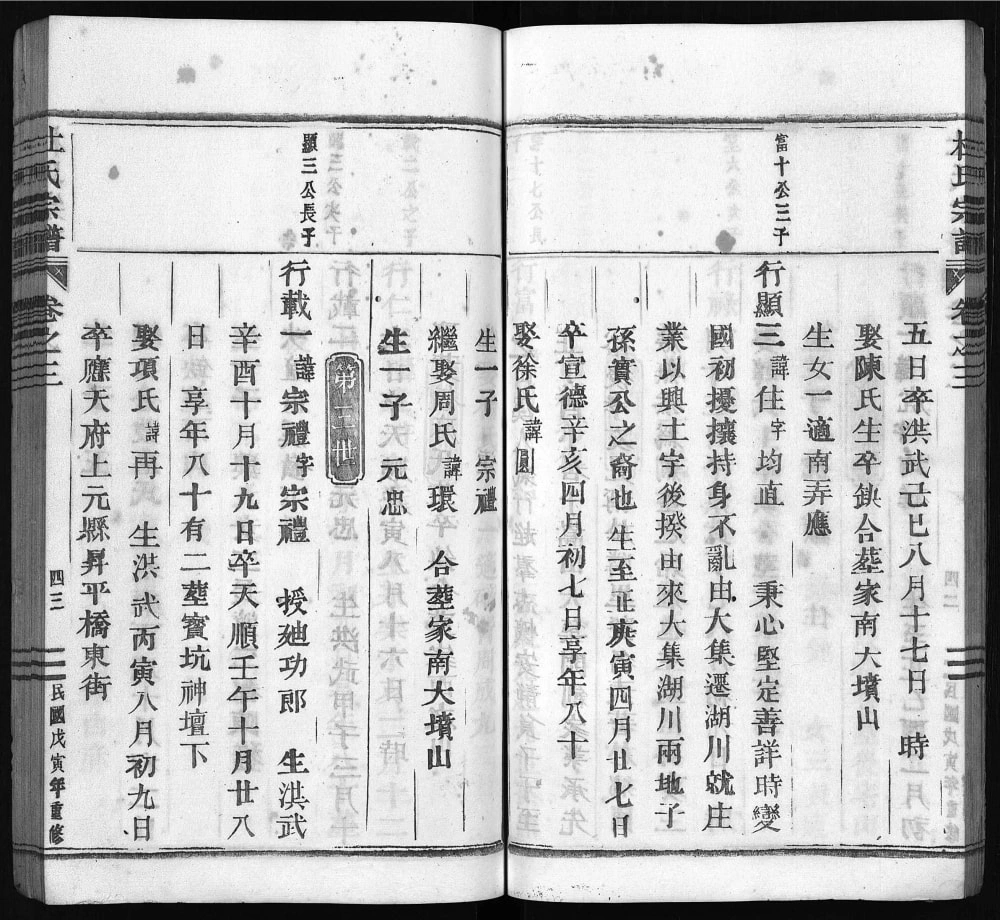 杜氏宗譜
卷之三
民國戊寅年重修
五日卒洪武己巳八月十七日　時
娶陳氏生卒缺合塟家南大墳山
生女一適南弄應
富十公三子
行顯三諱住字均直　秉心堅定善詳時變
國初擾攘持身不亂由大集遷湖川就庄
業以興土宇後揆由來大集湖川兩地子
孫實公之裔也　生至正庚寅四月廿七日
卒宣德辛亥四月初七日享年八十
娶徐氏諱圓
生一子　宗禮
繼娶周氏諱環　合塟家南大墳山
生一子　元忠
第三世
顯三公長子
行載一諱宗禮字宗禮　授廸功郎　生洪武
辛酉十月十九日卒天順壬午十月廿八
日　享年八十有二塟寶坑神壇下
娶項氏諱再　生洪武丙寅八月初九日
卒應天府上元縣昇平橋東街
杜氏宗譜
卷之三
四三
民國戊寅年重修